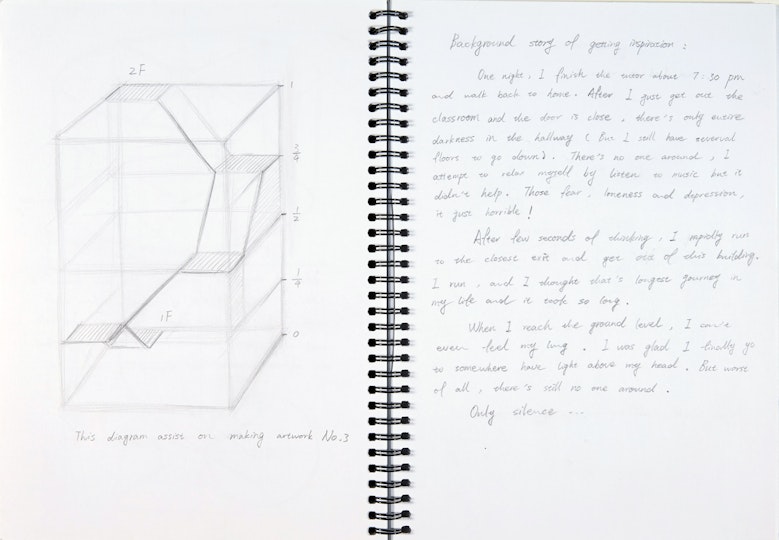 2F
1
3/4
1/2
1/4
1F
0
This diagram assist on making artwork No.3
Background story of getting inspiration :
One night, I finish the tutor about 7:30 pm
and walk back to home. After I just get out the
classroom and the door is close, there's only entire
darkness in the hallway ( But I still have several
floors to go down). There's no one around, I
attempt to relax myself by listen to music but it
didn't help. Those fear, loneness and depression,
it just horrible!
After few seconds of thinking, I rapidly run
to the closest exit and get out of this building.
I run, and I thought that's longest journey in
my life and it took so long.
When I reach the ground level, I can't
even feel my lung. I was glad I finally go
to somewhere have light above my head. But worse
of all, there's still no one around.
Only silence ...